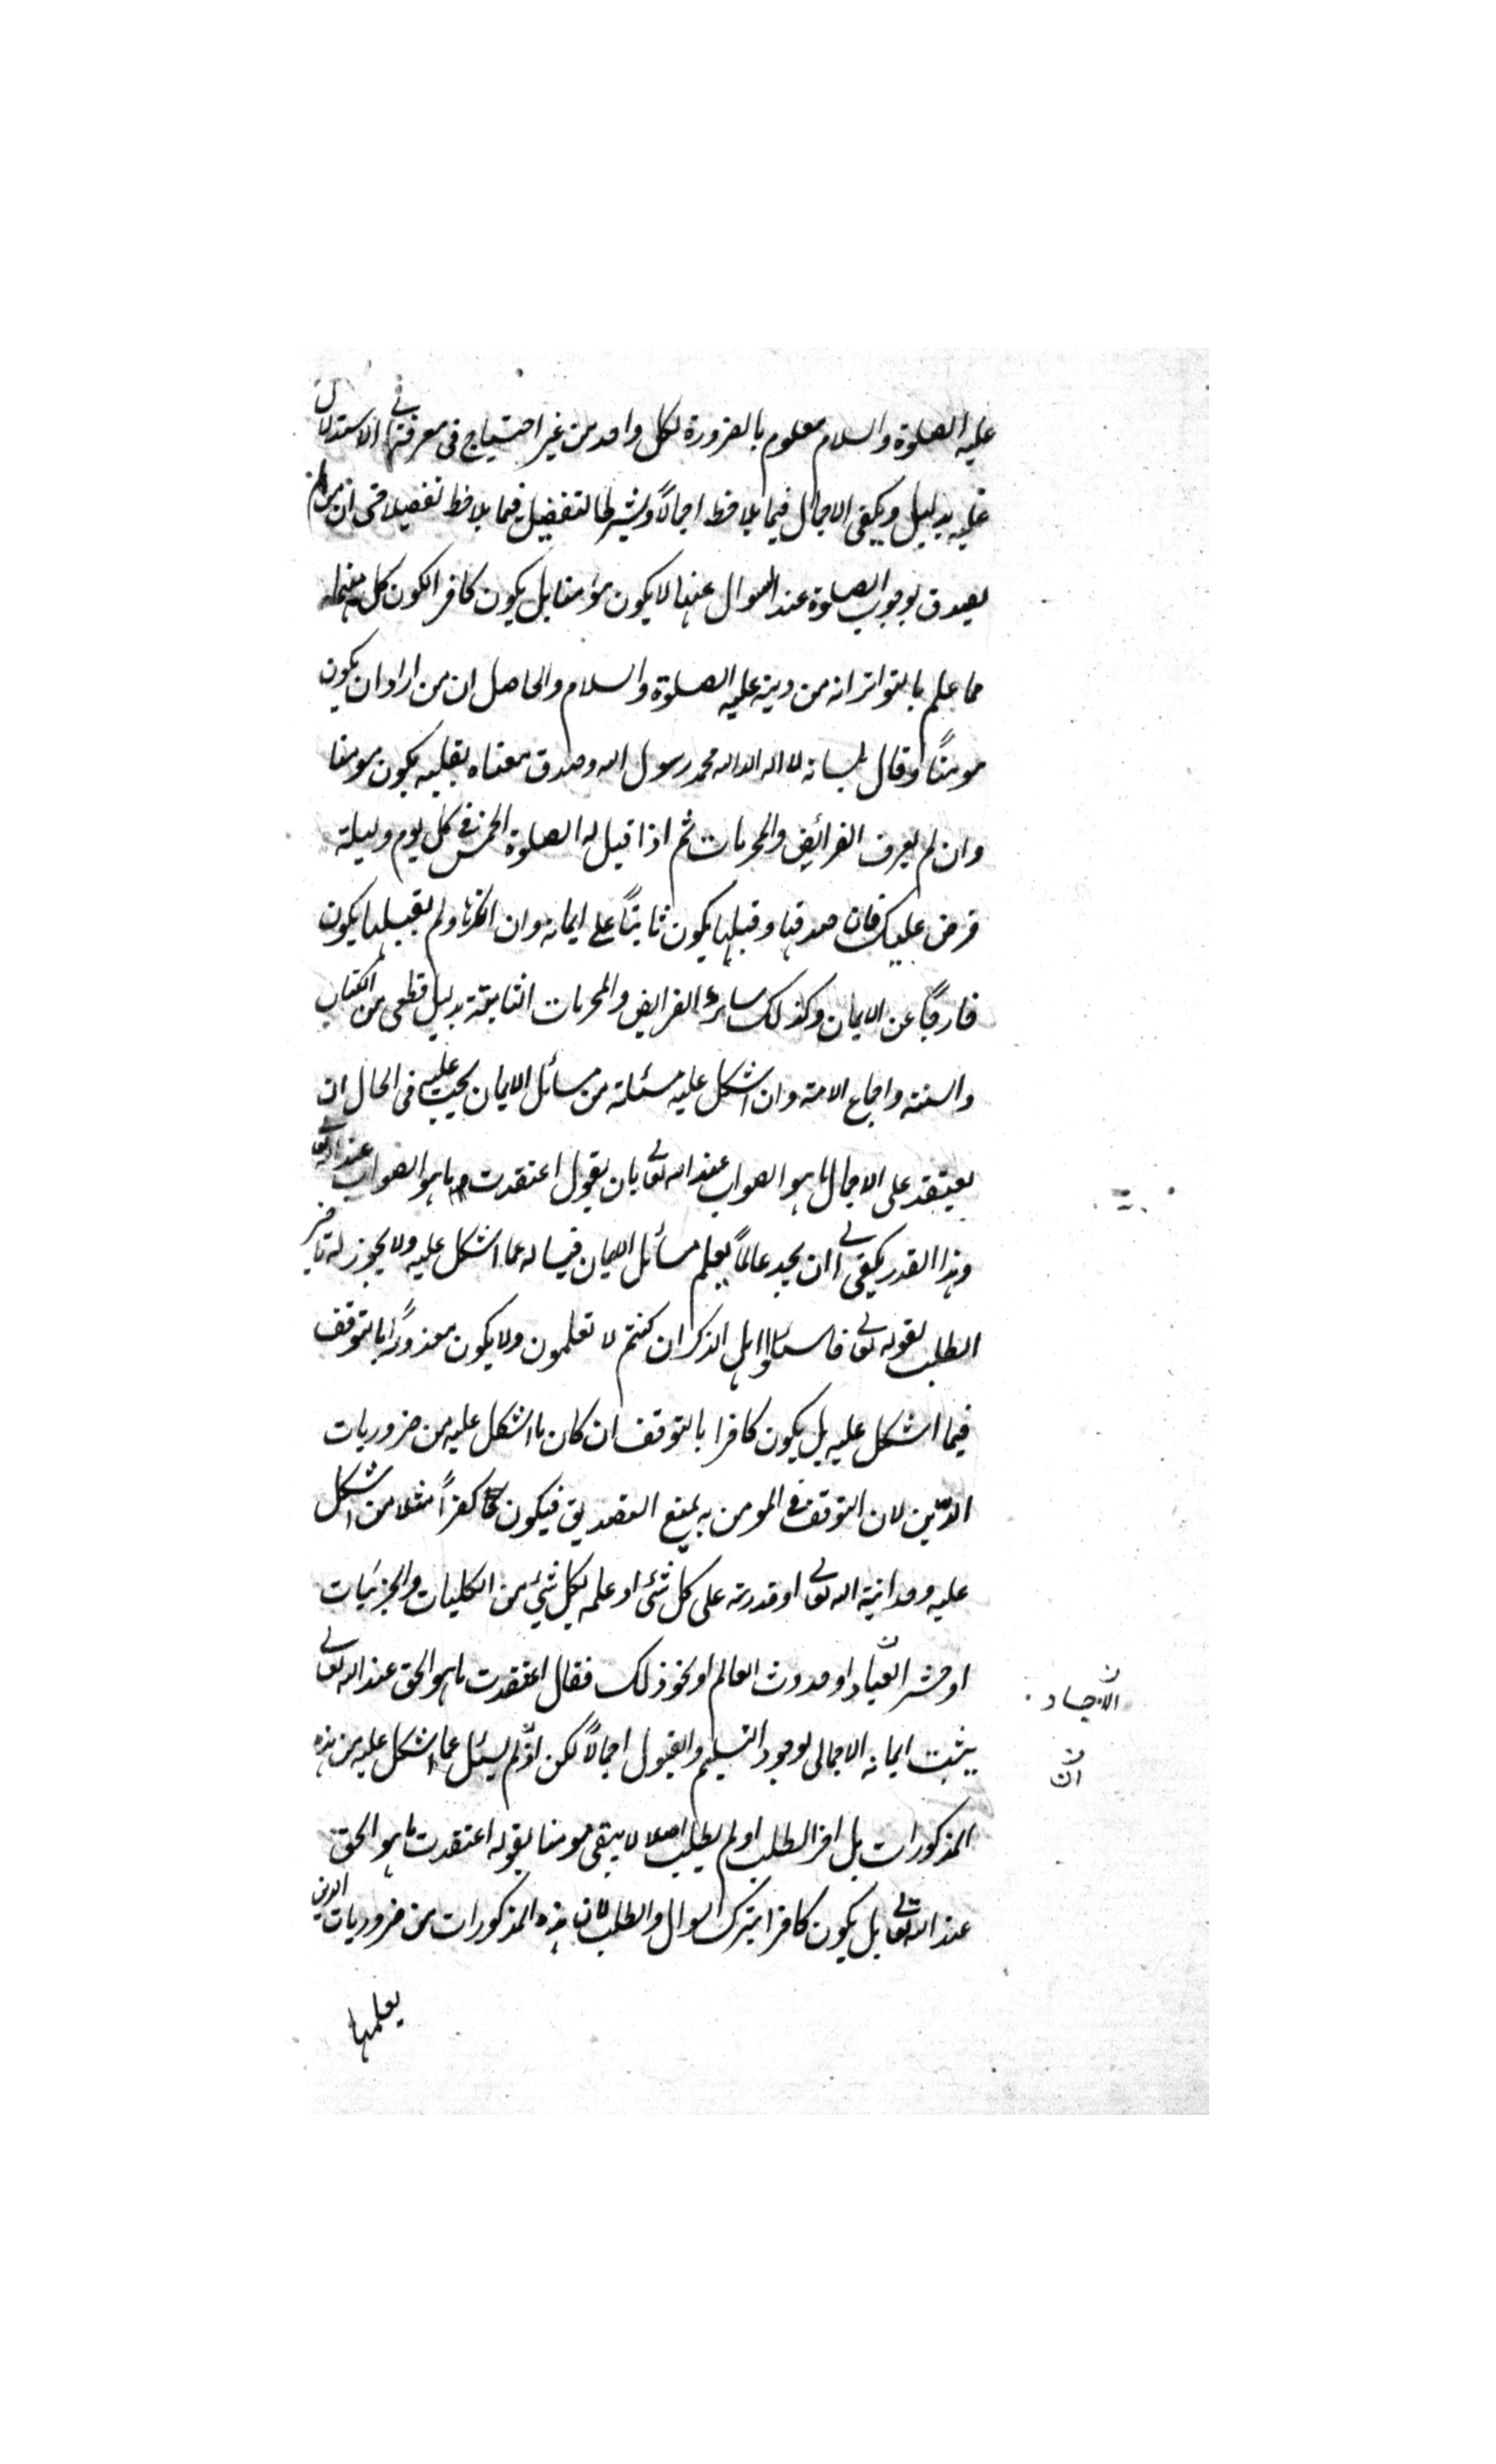 عليه الصلوة والسلام معلوم بالضرورة لكل واحد من غير احتياج فى معرفتها الى الاستدلال
عليه بدليل ويكفى الاجمال فيما يلاحظ اجمالاً ويشترط التفصيل فيما يلاحظ تفصيلا حتى ان من لم
يصدق بوجوب الصلوة عند السوال عنها لا يكون مؤمنا بل يكون كافرا لكون كل منهما
مما علم بالتواتر انه من دينه عليه الصلوة والسلام والحاصل ان من اراد ان يكون
مومنًا وقال بلسانه لا اله الا الله محمد رسول الله وصدق معناه بقلبه يكون مومنا
وان لم يعرف الفرائض والمحرمات ثم اذا قيل له الصلوة الخمس فى كل يوم وليلة
فرض عليك فان صدقها وقبلها يكون ثابتاً على ايمانه وان انكرها ولم يقبلها يكون
خارجاً عن الايمان وكذلك سائر الفرايض والمحرمات الثابتة بدليل قطعى من الكتاب
والسنة واجماع الامة وان اشكل عليه مسئلة من مسائل الايمان يجب عليه فى الحال ان
يعتقد على الاجمال ما هو الصواب عند الله تعالى بان يقول اعتقدت ما هو الصواب عند الله تعالى
وهذا القدر يكفى الى ان يجد عالماً يعلم مسائل الايمان فيساله عما اشكل عليه ولا يجوز له تاخير
الطلب لقوله تعالى فاسئلوا اهل الذكر ان كنتم لا تعلمون ولا يكون معذوراً بالتوقف
فيما اشكل عليه بل يكون كافرا بالتوقف ان كان ما اشكل عليه من ضروريات
الدّين لان التوقف فى المومن به يمنع التصديق فيكون كفراً مثلا من اشكل
عليه وحدانية الله تعالى او قدرته على كل شئ او علمه بكل شئ من الكليات والجزئيات
او حشر العباد او حدوث العالم او نحو ذلك فقال اعتقدت ما هو الحق عند الله تعالى
الاجساد
يثبت ايمانه الاجمالى لوجود التسليم والقبول اجمالاً لكن اذا لم يسئل عما اشكل عليه من هذه
ان
المذكورات بل اخر الطلب او لم يطلب اصلا لا يبقى مومنا بقوله اعتقدت ما هو الحق
عند الله تعالى بل يكون كافرا بترك السوال والطلب لان هذه المذكورات من ضروريات الدين
يعلمها